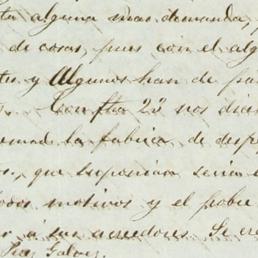 alguna mas demanda,
de cosas, pues con el alg
y Algunos han de pa
Con fha 23 nos dia
la fabrica de desp
que suponian seria
motivos y el pobre
a sus acreedores. Se cre
Galvez